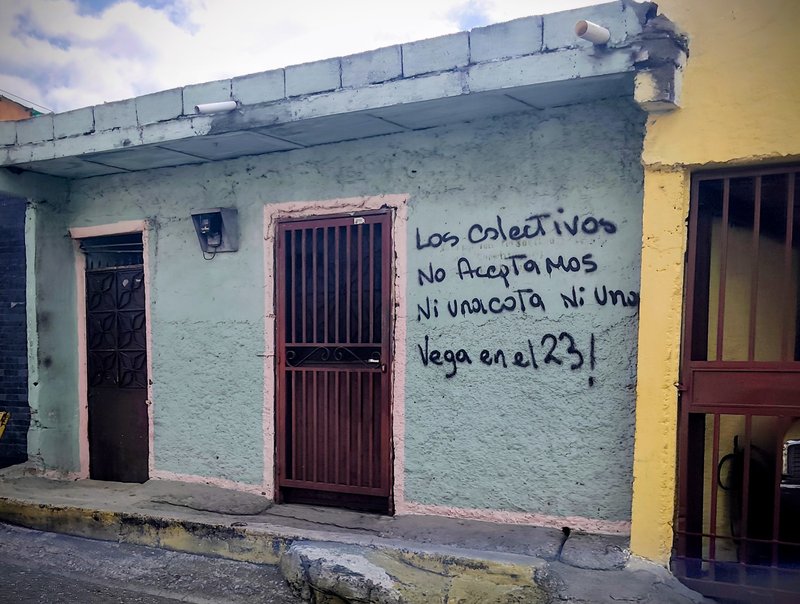 Los Colectivos
No Aceptamos
Ni una cota Ni Una
Vega en el 23!